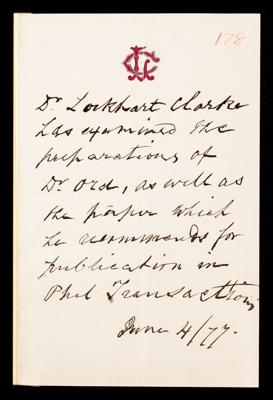 178
Dr Lockhart Clarke
has examined the
preparations of
Dr Ord, as well as
the paper which
he recommends for
publication in
Phil Transactions
June 4/77.